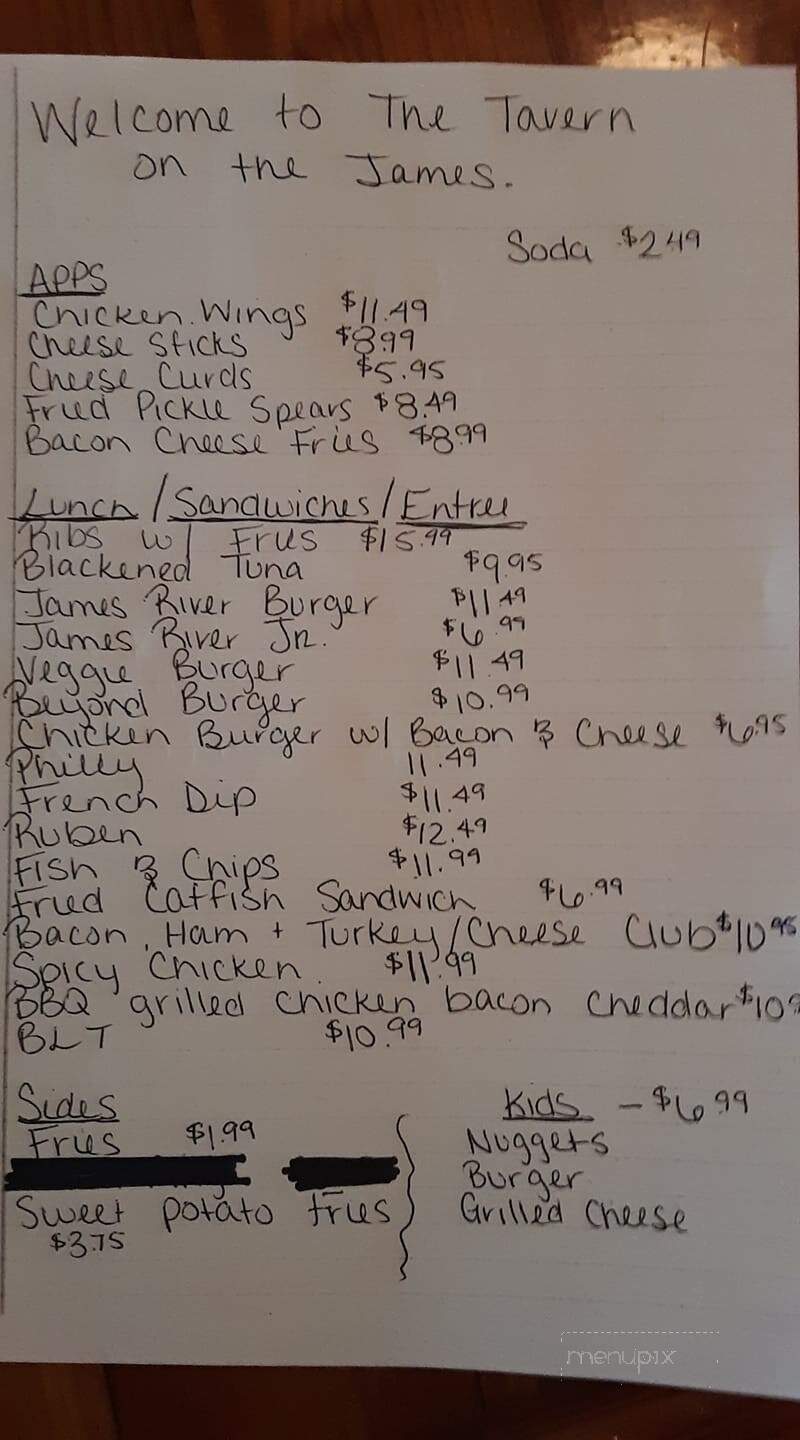 Welcome to The Tavern
on the James.
Soda $2.49
APPS
Chicken Wings $11.49
Cheese Sticks $8.99
Cheese Curds $5.95
Fried Pickle Spears $8.49
Bacon Cheese Fries $8.99
Lunch/Sandwiches/Entree
Ribs w/ Fries $15.99
Blackened Tuna $9.95
James River Burger $11.49
James River Jr. $6.99
Veggie Burger $11.49
Beyond Burger $10.99
Chicken Burger w/ Bacon & Cheese $6.95
Philly 11.49
French Dip $11.49
Ruben $12.49
Fish & Chips $11.99
Fried Catfish Sandwich $6.99
Bacon, Ham + Turkey/Cheese Club $10.95
Spicy Chicken $11.99
BBQ grilled chicken bacon cheddar $10
BLT $10.99
Sides
Fries $1.99
Sweet potato fries
$3.75
Kids - $6.99
Nuggets
Burger
Grilled Cheese
menupix